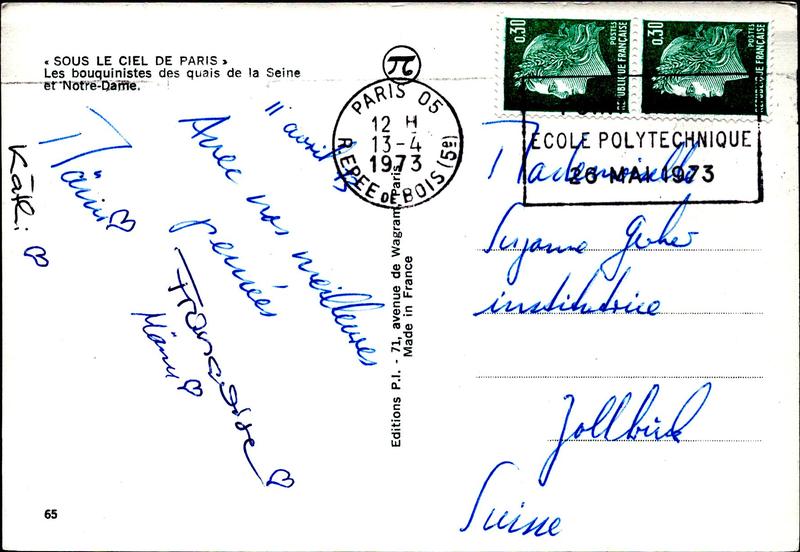 « SOUS LE CIEL DE PARIS »
Les bouquinistes des quais de la Seine
et Notre-Dame.
11 avril 73
Avec nos meilleures
pensées
Françoise
Käthi
65
Editions P.I. - 71, avenue de Wagram, Paris
Made in France
π
PARIS 05
12 H
13-4
1973
R.EPEE DE BOIS (5e)
0,30
POSTES
REPUBLIQUE FRANÇAISE
0,30
POSTES
REPUBLIQUE FRANÇAISE
ECOLE POLYTECHNIQUE
26 MAI 1973
Mademoiselle
Suzanne
institutrice
Zollbrück
Suisse